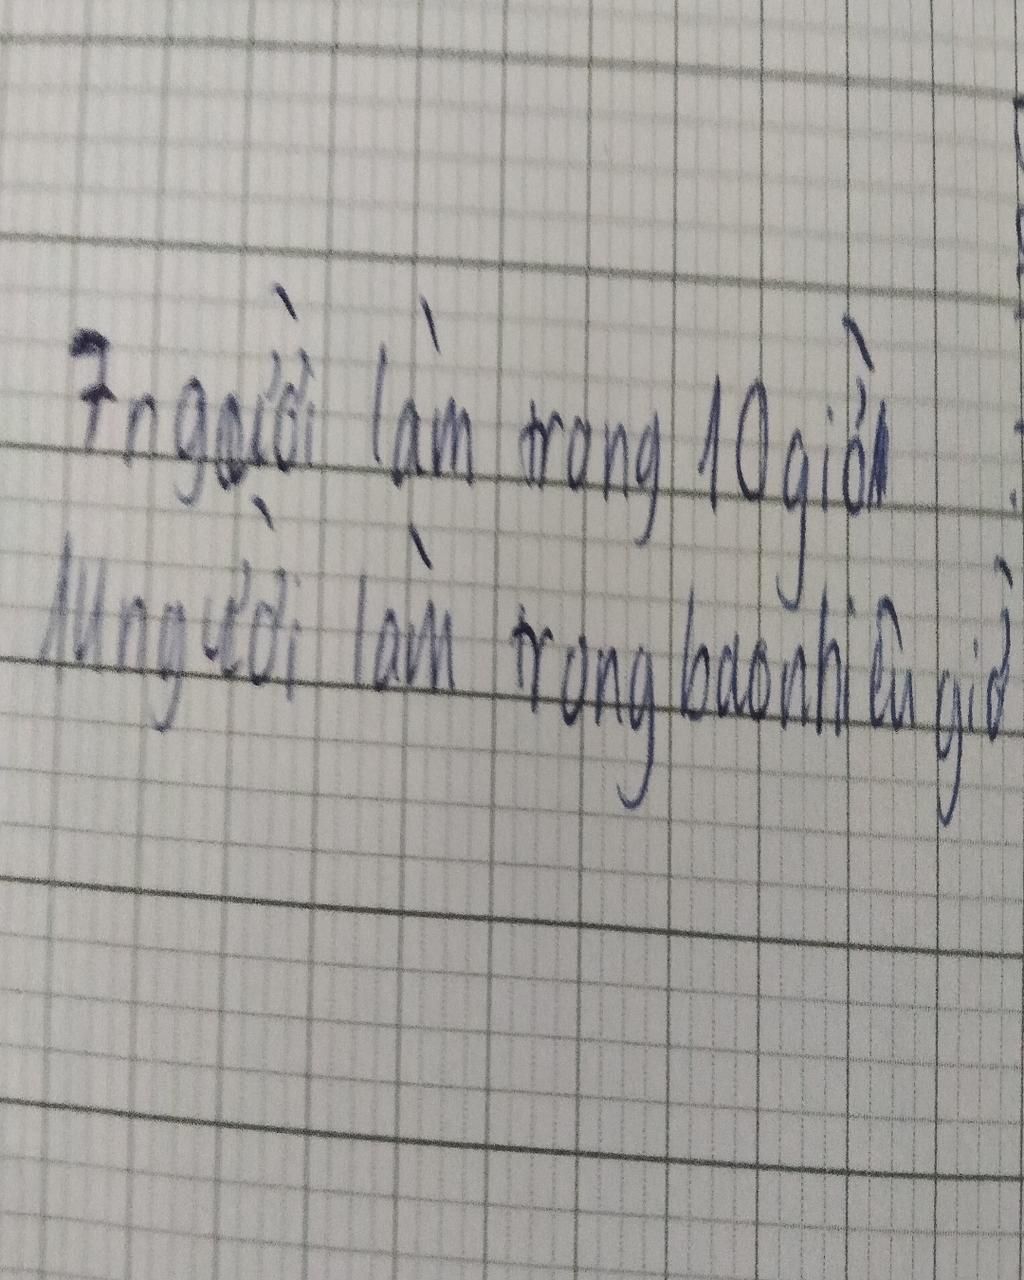 7 người làm trong 10 giờ
14 người làm trong bao nhiêu giờ